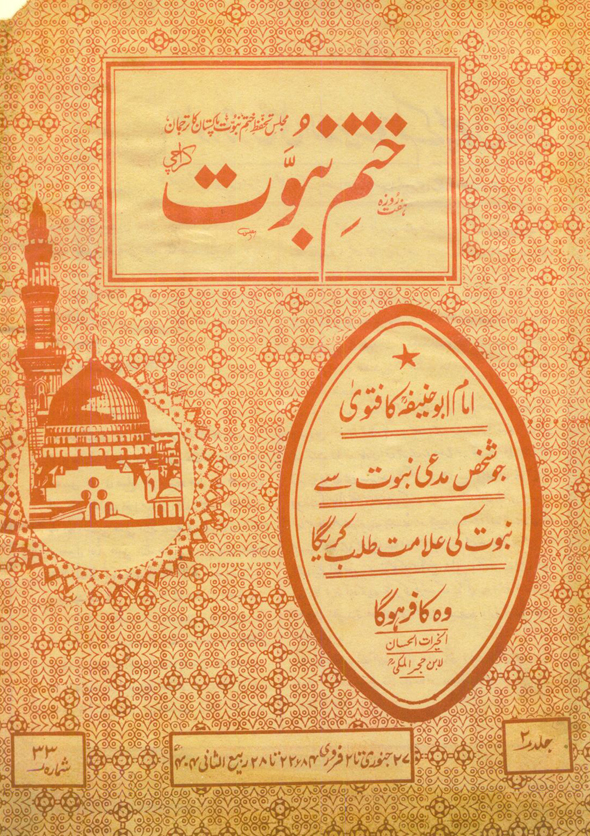 مجلس تحفظ ختم نبوت پاکستان کا ترجمان
ہفت روزہ
ختم نبوّت
کراچی
امام ابو حنیفہؒ کا فتویٰ
جو شخص مدعی نبوت سے
نبوت کی علامت طلب کریگا
وہ کافر ہوگا
الخیرات الحسان
لابن حجر المکیؒ
جلد ۲
۲۷ جنوری تا ۲ فروری ۸۴ء ۲۲ تا ۲۸ ربیع الثانی ۱۴۰۴ھ
شمارہ ۳۳